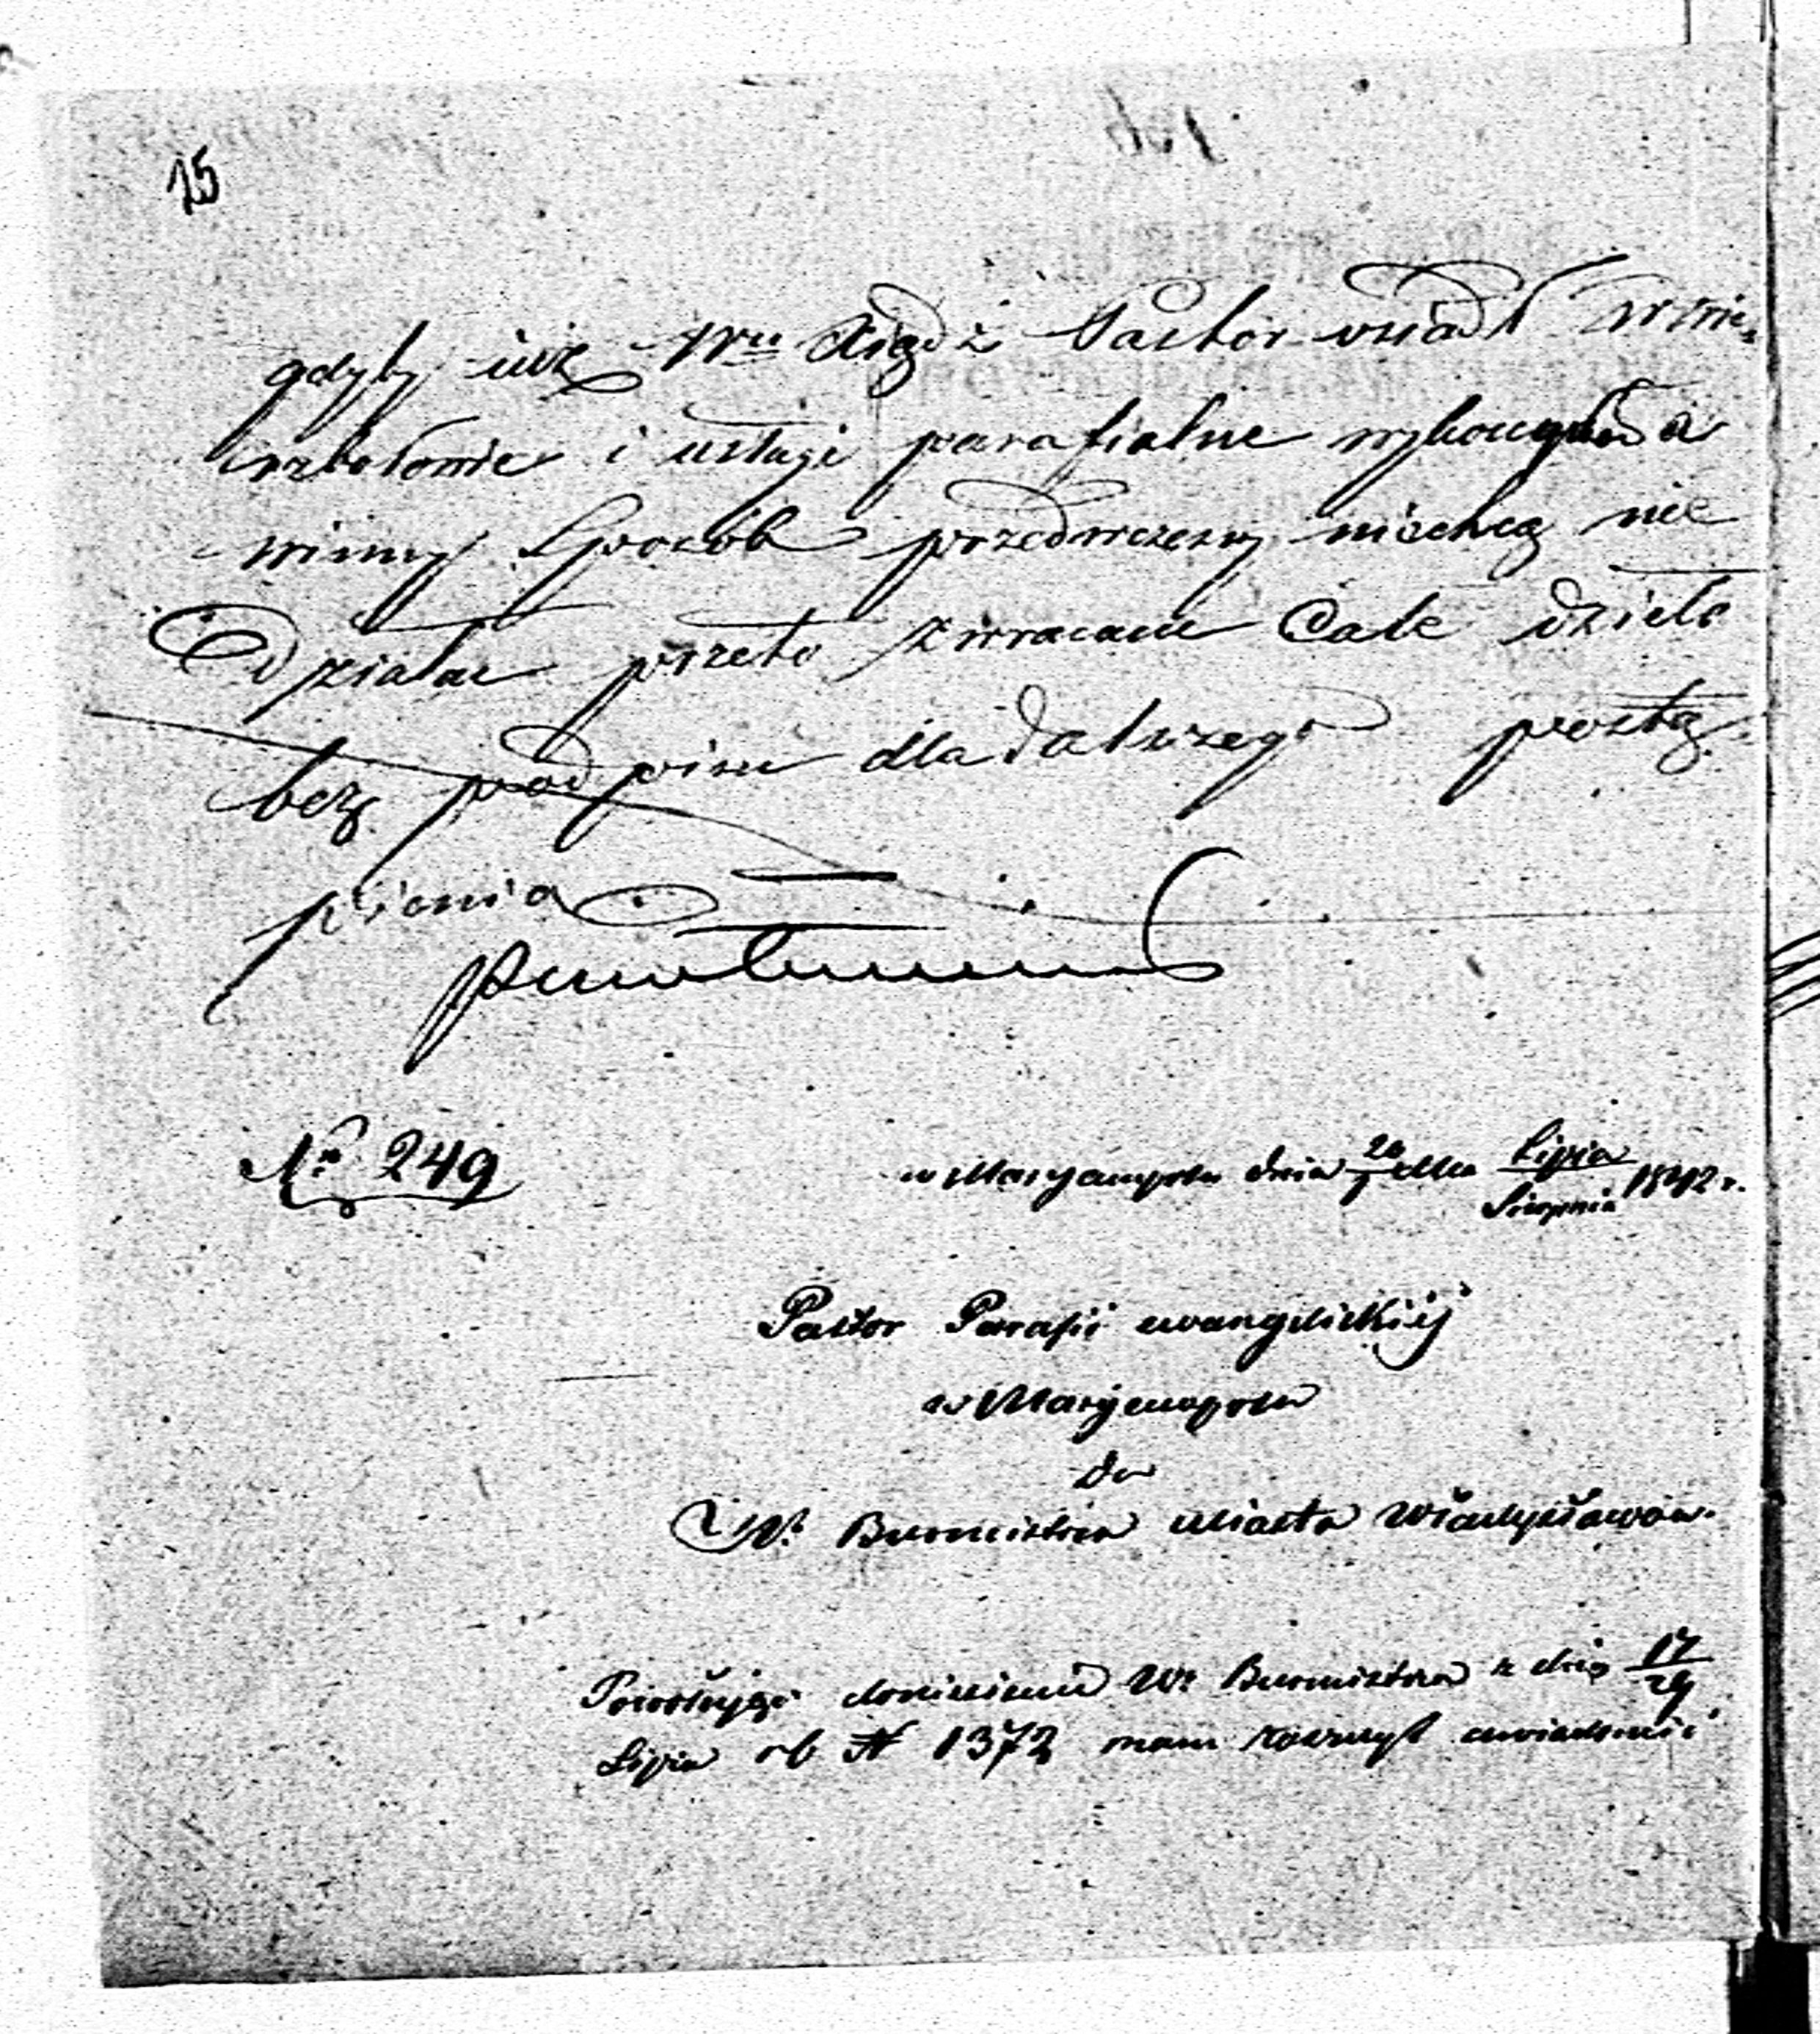 15
gdyby już Wny Xiądz Pastor wsiadł w nie
i usługi parafialne
winny Sposób przedwczesny niechcę nic
Działać przeto zwracam Całe dzieło
bez podpisu dla dalszego postą
pienia
No 249
w Maryampolu dnia 20/1 Lipca/Sierpnia 1842 r.
Pastor Parafii ewangelickiej
w Maryampolu
do
W. Burmistrza Miasta Władysławowa.
W. Burmistrza z dnia 17/29
Lipca rb N 1372 mam zaszczyt uwiadomić